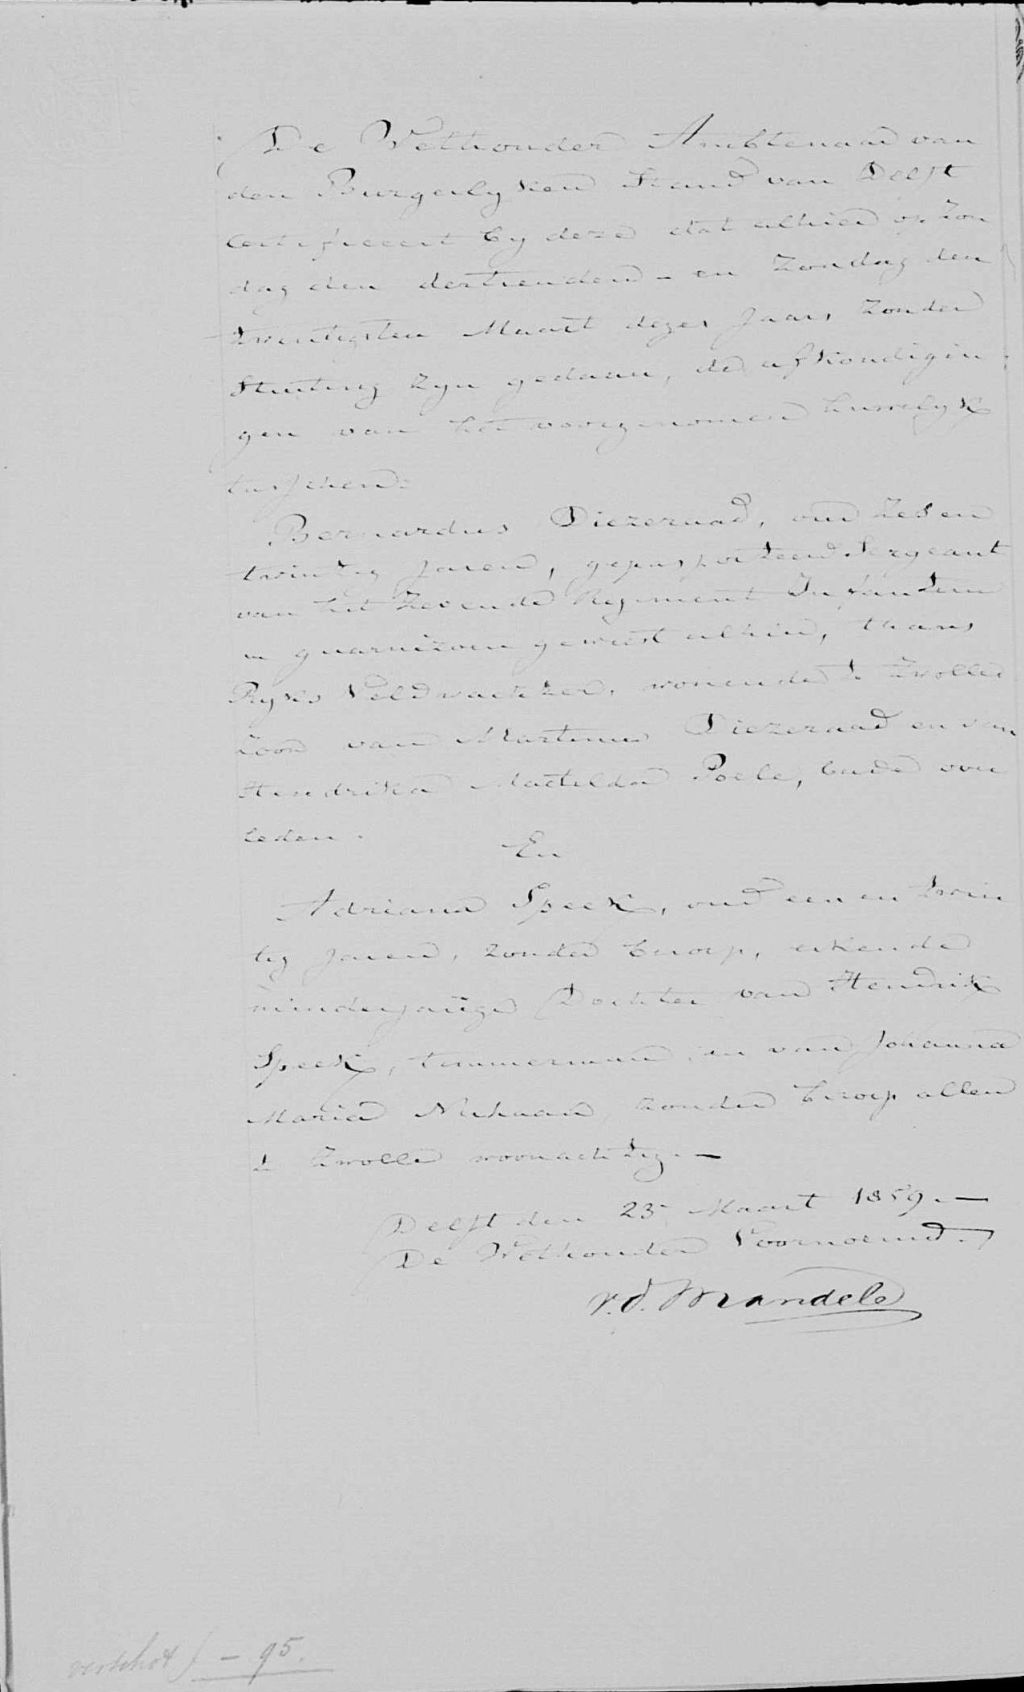 De Wethouder Ambtenaar van
den Burgerlyken Stand van Delft
Certificeert by deze dat alhier op Zon
dag den dertienden – en Zondag den
twintigsten Maart dezes Jaars zonder
Stuiting zyn gedaan, de afkondigin
gen van het voorgenomen huwelyk
tusschen:
Bernardus Diezeraad, oud zes en
twintig jaren, gepasporteerd Sergeant
van het Zevende Regiment Infanterie
in guarnizoen geweest alhier, thans
Ryks Veldwachter, wonende te Zwolle
Zoon van Martinus Diezeraad en van
Hendrika Matilda Poele, beide over
leden.
En
Adriana Speek, oud een en twin
tig jaren, zonder beroep, erkende
minderjarige Dochter van Hendrik
Speek, timmerman en van Johanna
Maria zonder beroep allen
te Zwolle woonachtig. –
Delft den 23 Maart 1859. –
De Wethouder Voornoemd.
v. d. Mandele
verschot – 95.